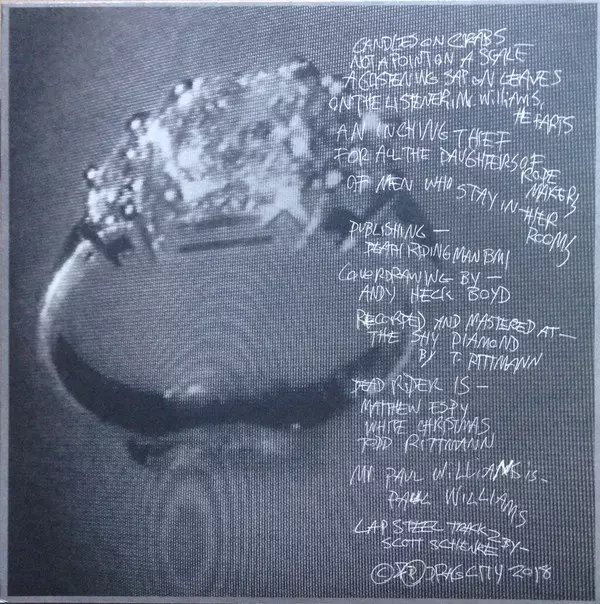 CANDLES ON CRABS —
NOT A POINT ON A SCALE
A GLISTENING SAP ON LEAVES
ON THE LISTENERING WILLIAMS,
HE FARTS
AN INCHING THIEF
FOR ALL THE DAUGHTERS OF
ROPE
MAKERS
OF MEN WHO STAY IN THEIR
ROOMS
PUBLISHING —
DEATH RIDING MAN BMI
COVER DRAWING BY —
ANDY HECK BOYD
RECORDED AND MASTERED AT —
THE SHY DIAMOND
BY T. RITTMANN
DEAD RIDER IS —
MATTHEW ESPY
WHITE CHRISTMAS
TODD RITTMANN
MR. PAUL WILLIAMS IS —
PAUL WILLIAMS
LAP STEEL TRACK 2 BY —
SCOTT SCHENKE
©℗ DRAG CITY 2018